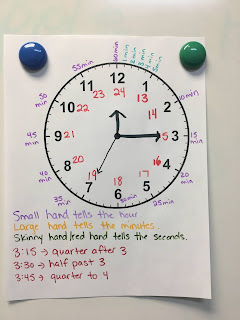 55min
60min
12
24
11
23
1
13
50
min
10
22
2
14
10min
45
min
9
21
3
15
min
40
min
8
20
4
16
20
min
35
min
7
19
6
18
5
17
25min
30min
Small hand tells the hour
Large hand tells the minutes.
Skinny hand/red hand tells the seconds.
3:15 → quarter after 3
3:30 → half past 3
3:45 → quarter to 4